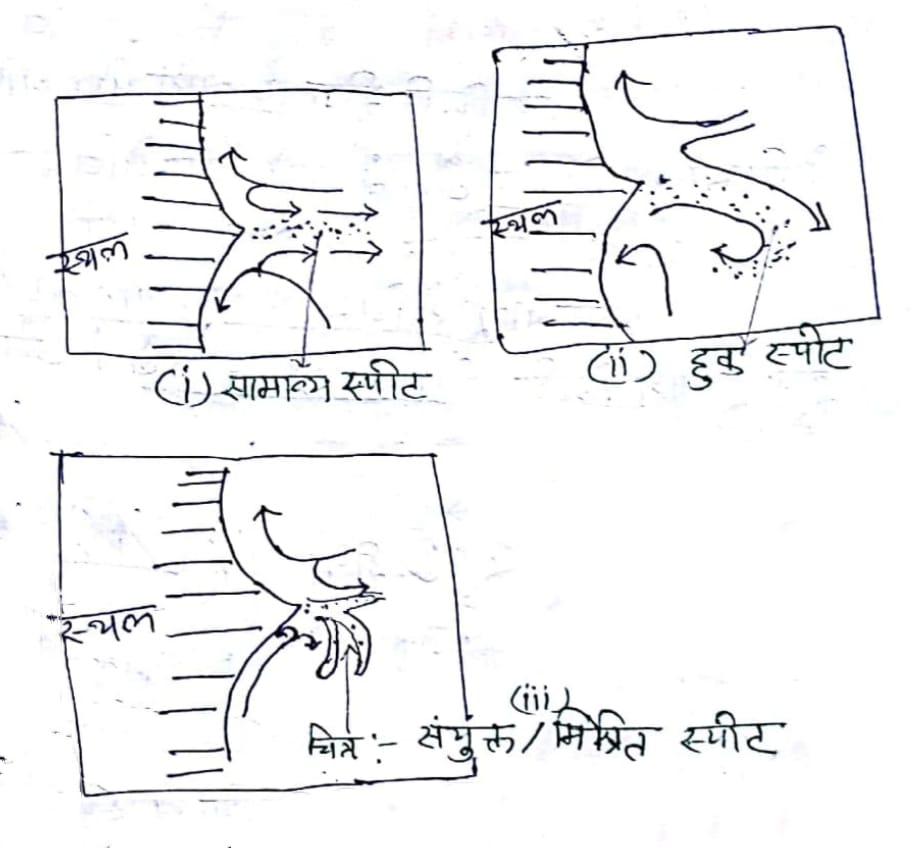 स्थल
(i) सामान्य स्पीट
स्थल
(ii) हुक स्पीट
स्थल
(iii)
चित्र :- संयुक्त / मिश्रित स्पीट